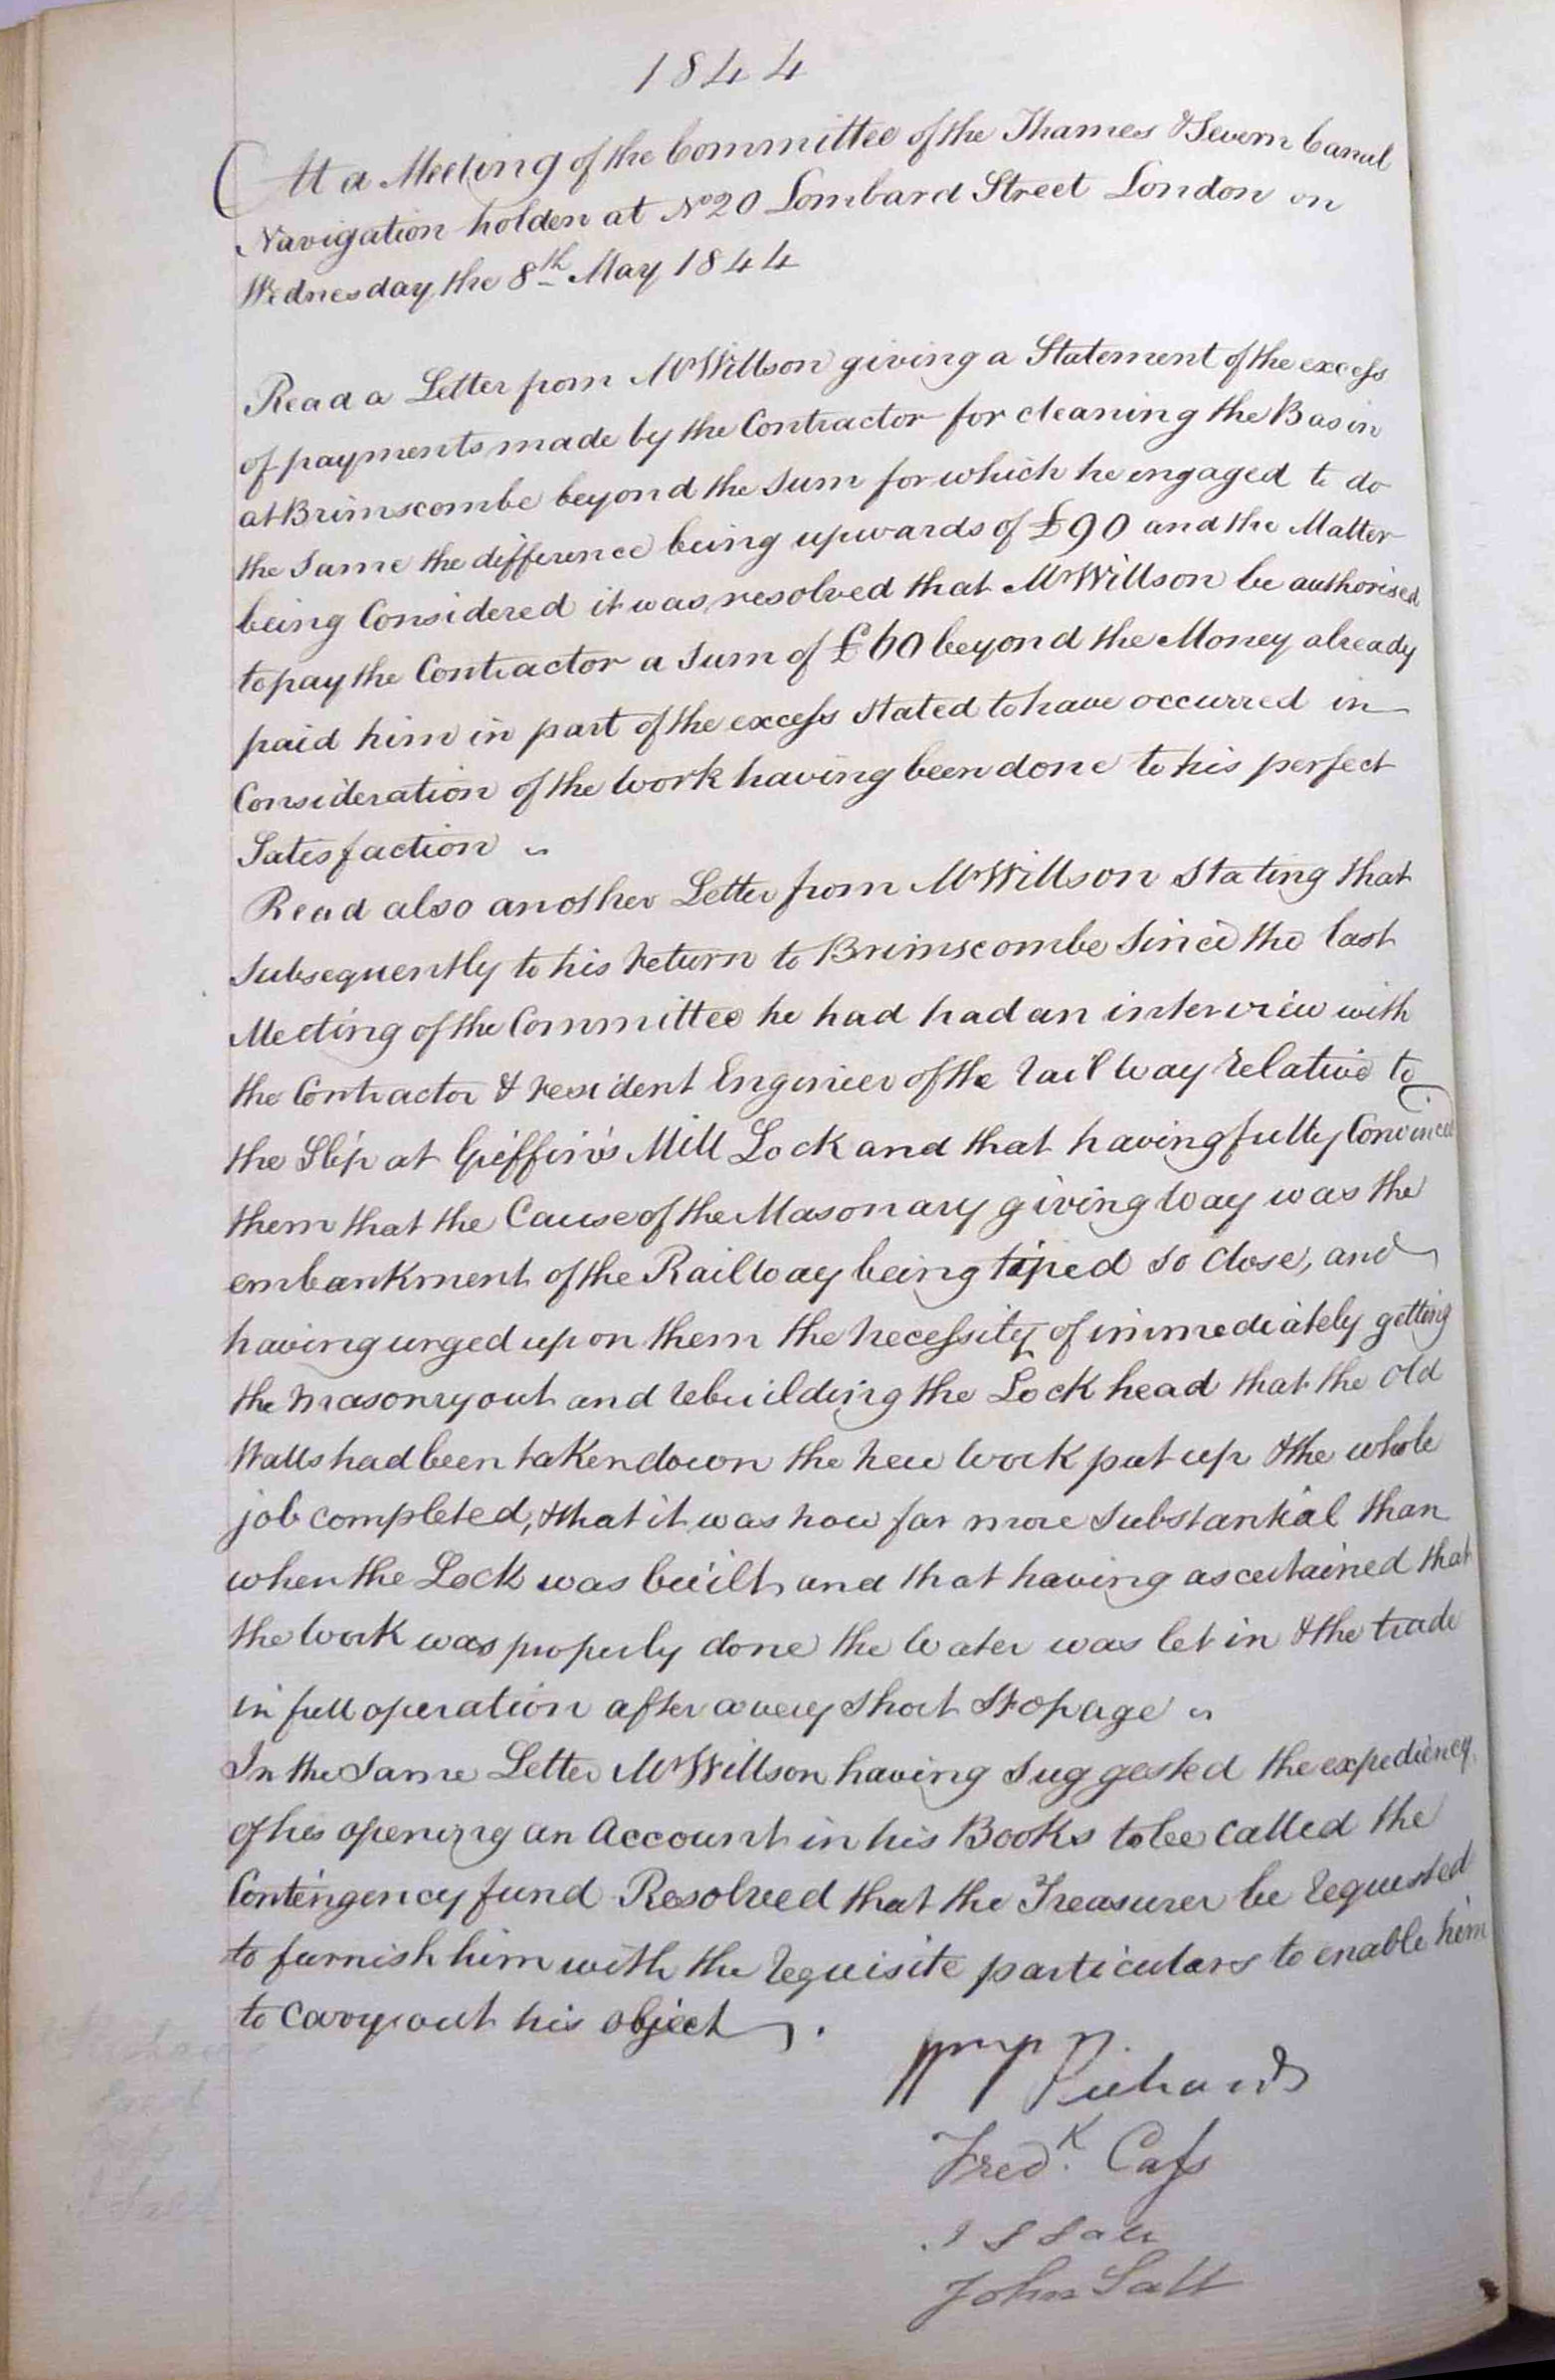 1844
At a Meeting of the Committee of the Thames & Severn Canal
Navigation holden at No 20 Lombard Street London on
Wednesday the 8th May 1844
Read a Letter from Mr Willson giving a Statement of the excess
of payments made by the Contractor for cleaning the Basin
at Brimscombe beyond the Sum for which he engaged to do
the Same the difference being upwards of £90 and the Matter
being Considered it was resolved that Mr Willson be authorised
to pay the Contractor a Sum of £60 beyond the Money already
paid him in part of the excess stated to have occurred in
Consideration of the Work having been done to his perfect
Satisfaction
Read also another Letter from Mr Willson Stating that
Subsequently to his return to Brimscombe Since the last
Meeting of the Committee he had had an interview with
the Contractor & resident Engineer of the railway relative to
the Slip at Griffin's Mill Lock and that having fully Convinced
them that the Cause of the Masonary giving way was the
embankment of the Railway being tiped so Close, and
having urged upon them the necessity of immediately getting
the Masonry out and rebuilding the Lock head that the Old
Walls had been taken down the new Work put up & the whole
job completed, & that it was now far more Substantial than
when the Lock was built and that having ascertained that
the Work was properly done the Water was let in & the trade
in full operation after a very Short Stopage
In the Same Letter Mr Willson having Suggested the expediency
of his opening an Account in his Books to be Called the
Contingency fund Resolved that the Treasurer be requested
to furnish him with the requisite particulars to enable him
to Carry out his Object.
Richards
Fredk. Cass
John Salt